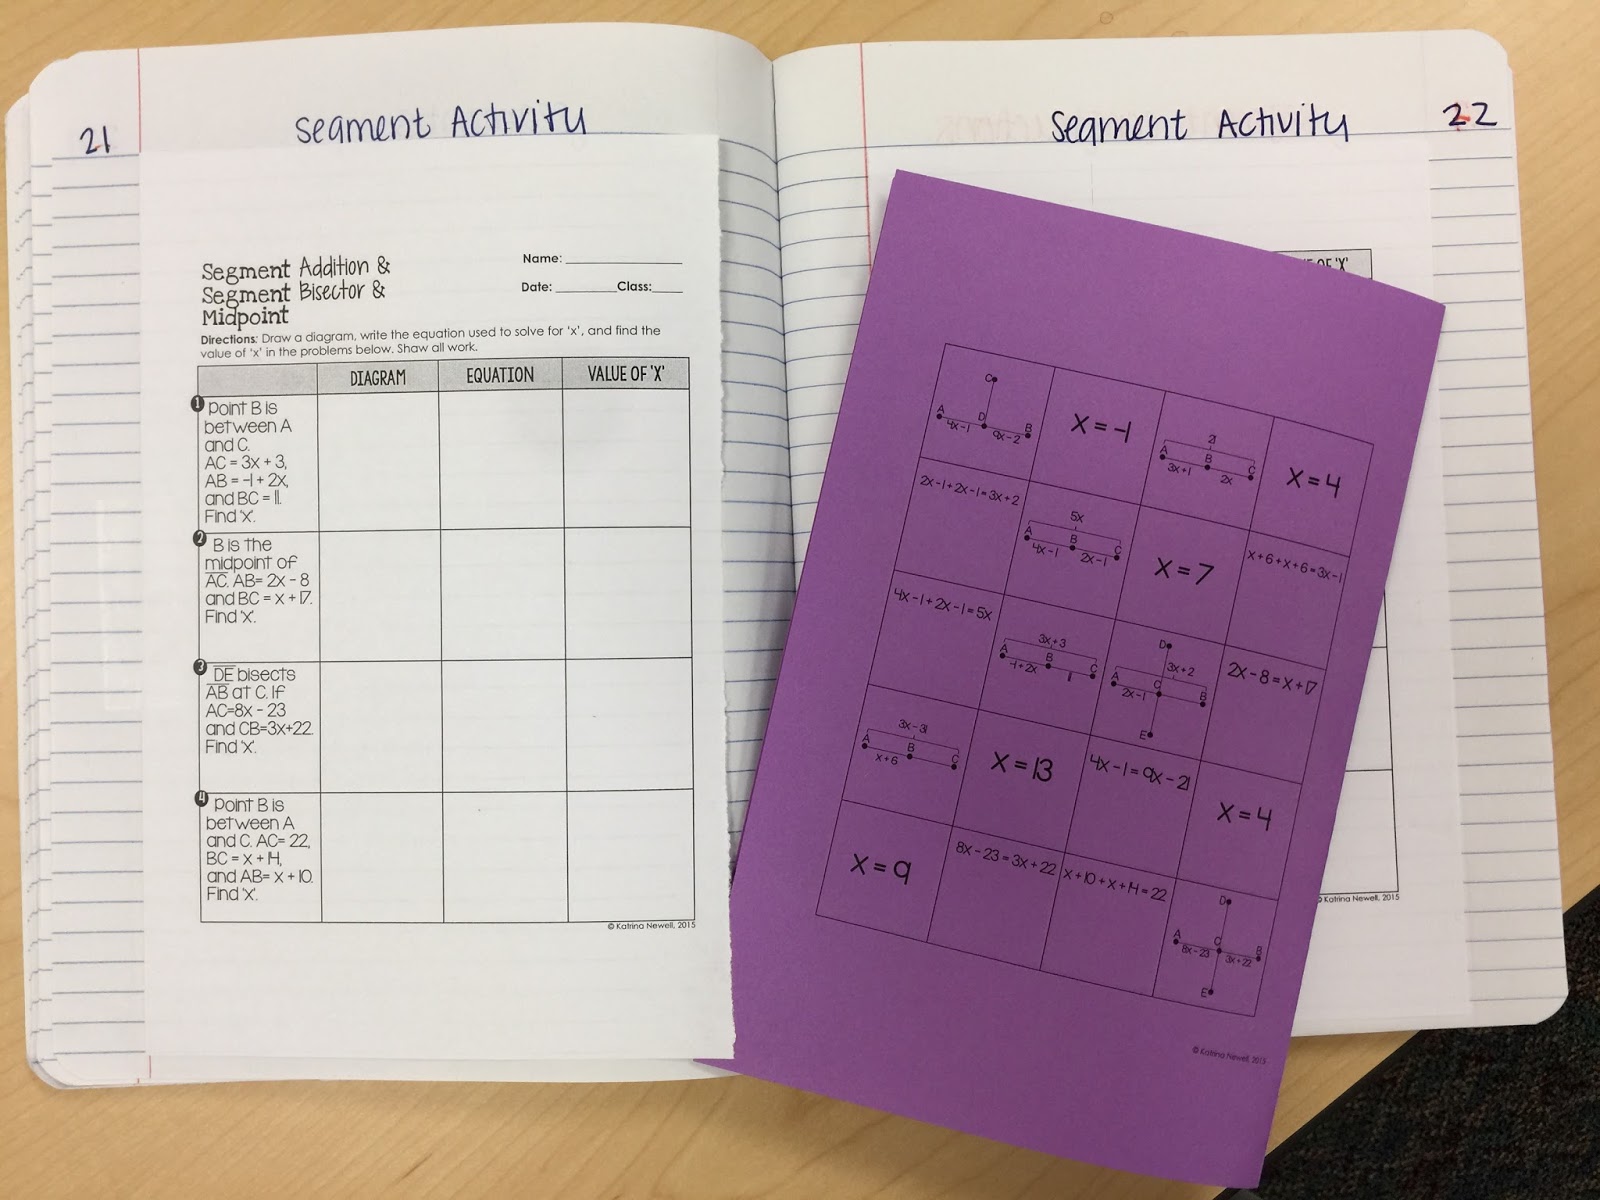 21
Segment Activity
Segment Addition &
Segment Bisector &
Midpoint
Name:
Date: Class:
Directions: Draw a diagram, write the equation used to solve for 'x', and find the
value of 'x' in the problems below. Shaw all work.
DIAGRAM EQUATION VALUE OF 'X'
1 Point B is
between A
and C.
AC = 3x + 3,
AB = -1 + 2x,
and BC = 11.
Find 'x'.
2 B is the
midpoint of
AC. AB= 2x - 8
and BC = x + 17.
Find 'x'.
3 DE bisects
AB at C. If
AC=8x - 23
and CB=3x+22.
Find 'x'.
4 Point B is
between A
and C. AC= 22,
BC = x + 14,
and AB= x + 10.
Find 'x'.
© Katrina Newell, 2015
Segment Activity
22
OF 'X'
C
A D B
4x-1 9x-2
x = -1
21
A B C
3x+1 2x
x = 4
2x-1+2x-1=3x+2
5x
A B C
4x-1 2x-1
x = 7
x+6+x+6=3x-1
4x-1+2x-1=5x
3x+3
A B C
-1+2x 11
D
3x+2
A C B
2x-1
E
2x-8=x+17
3x-31
A B C
x+6
x = 13
4x-1=9x-21
x = 4
x = 9
8x-23=3x+22
x+10+x+14=22
D
A C B
8x-23 3x+22
E
© Katrina Newell, 2015
Katrina Newell, 2015